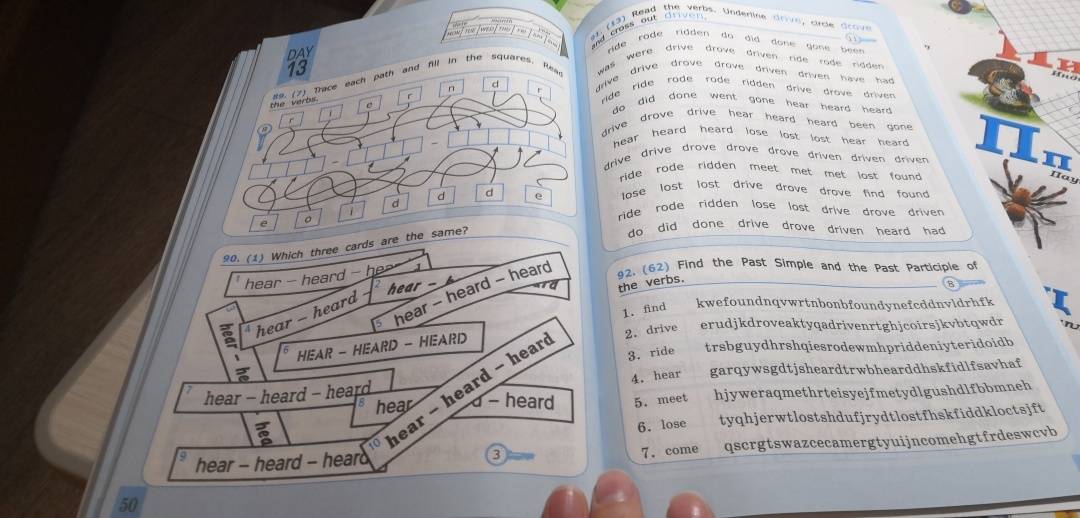 date month year
MON TUE WED THU FRI SAT SUN
DAY
13
89. (7) Trace each path and fill in the squares. Read
the verbs.
r i e r n d r
8
- -
e o i d d d e
90. (1) Which three cards are the same?
1 hear – heard –
2 hear –
3 hear – he
4 hear – heard
5 hear – heard – heard
6 HEAR – HEARD – HEARD
7 hear – heard – heard
8 hear – heard
9 hear – heard – heard
10 hear – heard – heard
3
50
91. (13) Read the verbs. Underline drive, circle drove
and cross out driven.
11
ride rode ridden do did done gone been
was were drive drove driven ride rode ridden
drive drive drove drove driven driven have had
ride ride rode rode ridden drive drove driven
do did done went gone hear heard heard
drive drove drive hear heard heard been gone
hear heard heard lose lost lost hear heard
drive drive drove drove drove driven driven driven
ride rode ridden meet met met lost found
lose lost lost drive drove drove find found
ride rode ridden lose lost drive drove driven
do did done drive drove driven heard had
92. (62) Find the Past Simple and the Past Participle of
the verbs.
8
1. find kwefoundnqvwrtnbonbfoundynefcddnvldrhfk
2. drive erudjkdroveaktyqadrivenrtghjcoirsjkvbtqwdr
3. ride trsbguydhrshqiesrodewmhpriddeniyteridoidb
4. hear garqywsgdtjsheardtrwbhearddhskfidlfsavhaf
5. meet hjyweraqmethrteisyejfmetydlgushdlfbbmneh
6. lose tyqhjerwtlostshdufjrydtlostfhskfiddkloctsjft
7. come qscrgtswazcecamergtyuijncomehgtfrdeswcvb
Пп